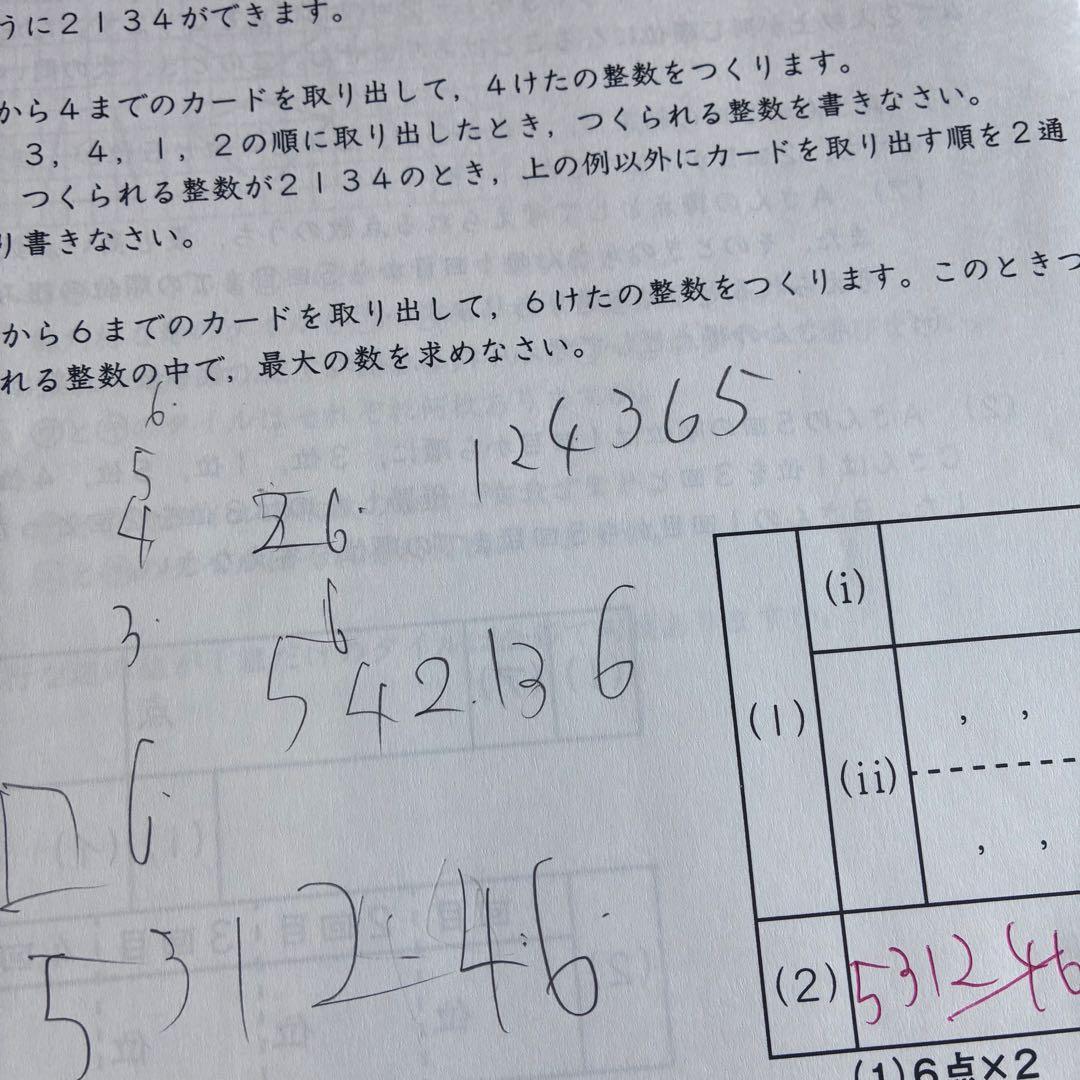 うに2134ができます。
から4までのカードを取り出して，4けたの整数をつくります。
3，4，1，2の順に取り出したとき，つくられる整数を書きなさい。
つくられる整数が2134のとき，上の例以外にカードを取り出す順を2通
り書きなさい。
から6までのカードを取り出して，6けたの整数をつくります。このときつ
れる整数の中で，最大の数を求めなさい。
6
5
4
3
6
124365
26
6
542136
531246
(1)
(i)
(ii)
， ，
， ，
(2) 531246
(1)6点×2